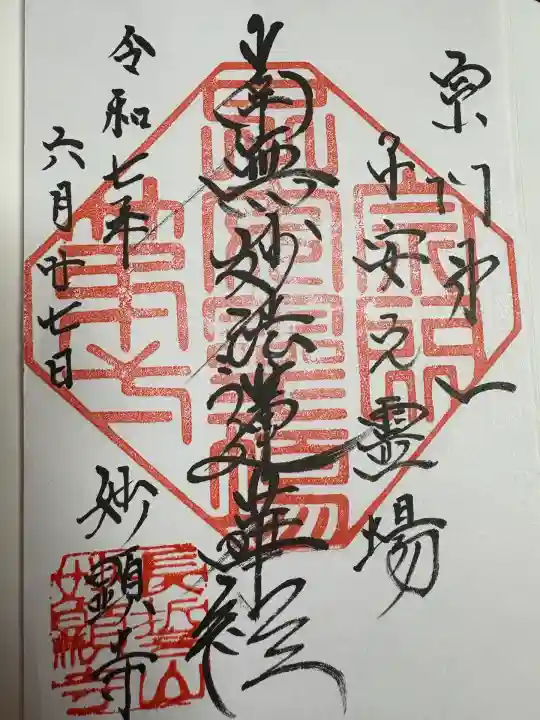 宗門第一
子安之霊場
南無妙法蓮華経
令和七年
六月廿七日
妙顕寺